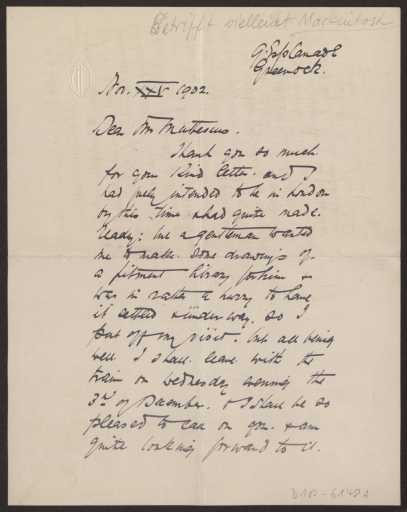 Betrifft vielleicht Mackintosh
9. Esplanade
Greenock.
Nov. XXV 1902.
Dear Mr Muthesius.
Thank you so much
for your kind letter. and I
had fully intended to be in London
by this time & had quite made
ready: but a gentleman wanted
me to make some drawings of
a fitment library for him &
was in rather a hurry to have
it settled & under way. so I
put off my visit. but all being
well I shall leave with the
train on Wednesday evening the
3rd of December. & I shall be so
pleased to call on you. & am
quite looking forward to it.